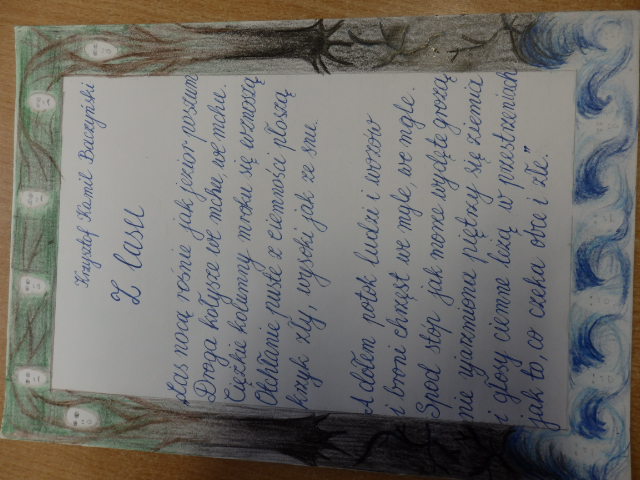 Krzysztof Kamil Baczyński
Z lasu
Las nocą rośnie jak jezior poszum
Droga kołysze we mchu, we mchu.
Ciężkie kolumny mroku się wznoszą
Otchłanie puste z ciemności płoszą
krzyk zły, wysoki jak ze snu.
A dołem potok ludzi i wozów
i broni chrzęst we mgle, we mgle.
Spod stóp jak morze wydęte grozą
nie ujarzmiona piętrzy się ziemia
i głosy ciemne leżą w przestrzeniach
jak to, co czeka obce i złe."